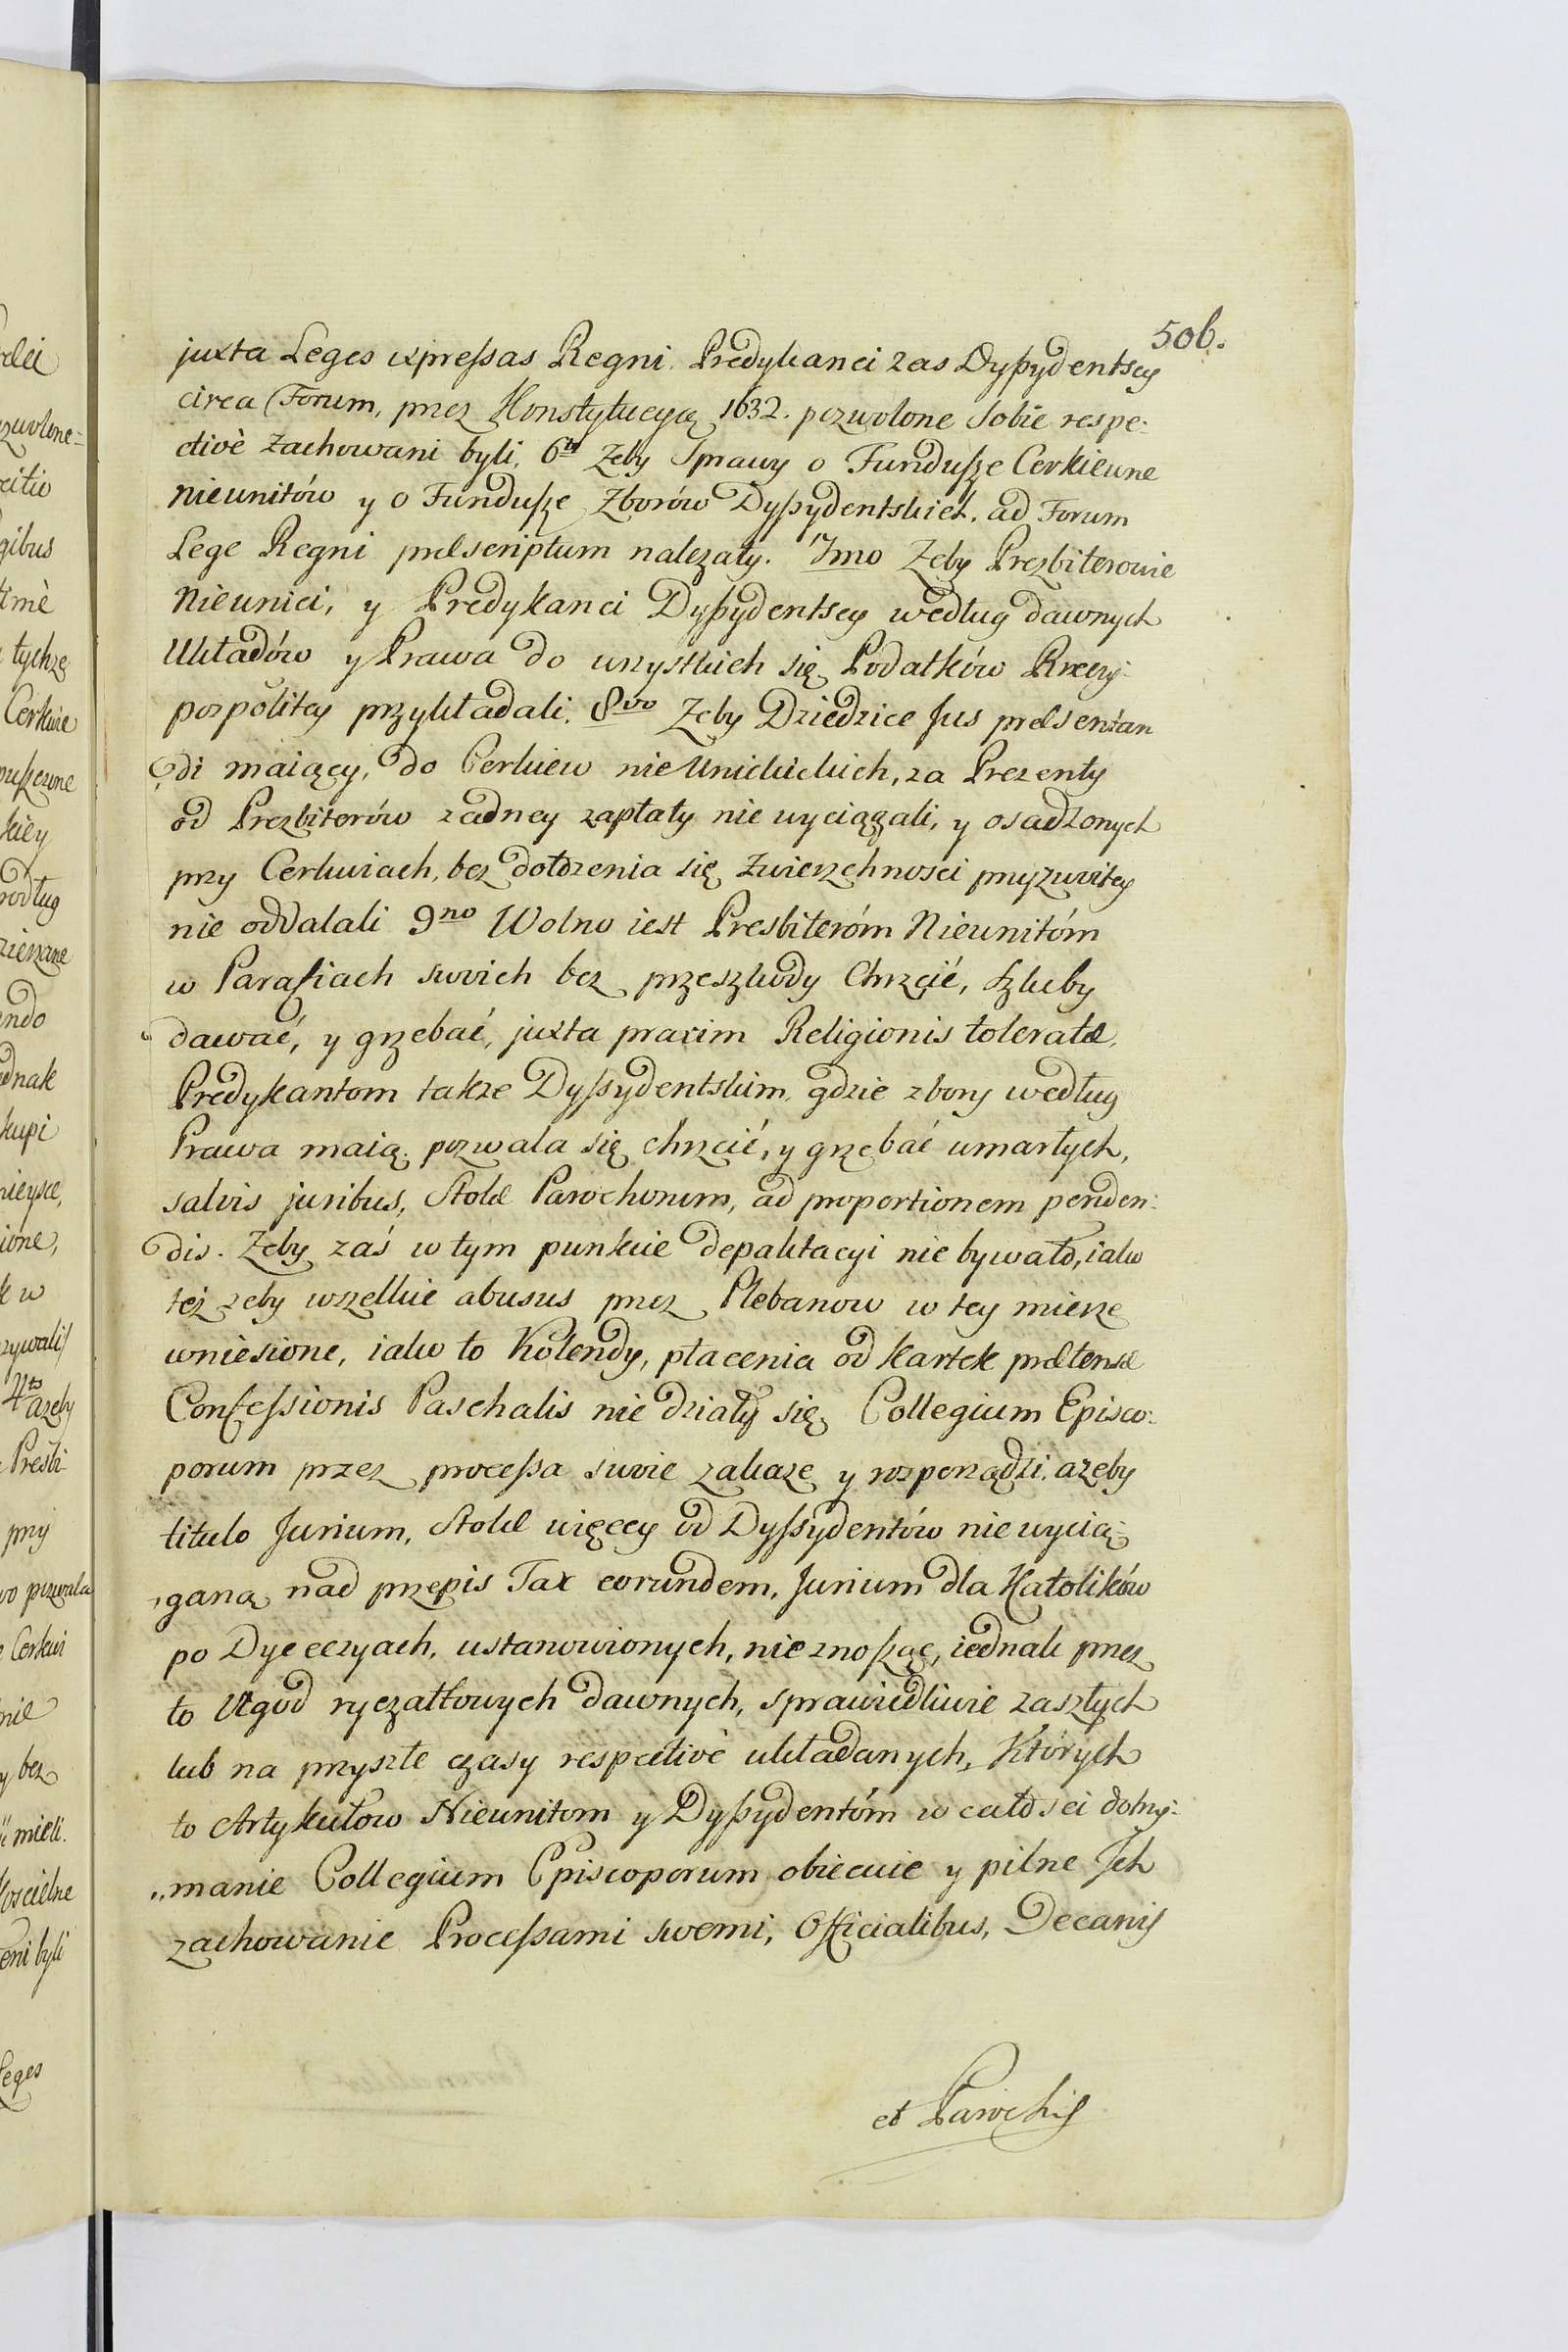 506.
juxta Leges expressas Regni. Predykanci zas Dyssydentscy
circa Forum, przez Konstytucyą 1632. pozwolone sobie respe-
ctivè zachowani byli. 6to Zeby Sprawy o Fundusze Cerkiewne
Nieunitów y o Fundusze Zborów Dyssydentskich, ad Forum
Lege Regni præscriptum nalezały. 7mo Zeby Prezbiterowie
Nieunici, y Predykanci Dyssydentscy według dawnych
Układów y Prawa do wszystkich się Podatków Rzeczy-
pospolitey przykładali. 8vo Zeby Dziedzice Jus præsentan
di maiący, do Cerkiew nie Unickich, za Prezenty
od Prezbiterów zadney zapłaty nie wyciągali, y osadzonych
przy Cerkwiach, bez dołożenia się Zwierzchnosci przyzwitey
nie oddalali 9no Wolno iest Presbiteróm Nieunitóm
w Parafiach swoich bez przeszkody Chrzcić, Szluby
dawać, y grzebać, juxta praxim Religionis toleratæ.
Predykantom takze Dyssydentskim, gdzie zbory według
Prawa maią. pozwala się chrzcić, y grzebać umarłych,
salvis juribus, Stolæ Parochorum, ad proportionem penden-
dis. Zeby zaś w tym punkcie depaktacyi nie bywało, iako
też zeby wszelkie abusus przez Plebanow w tey mierze
wniesione, iako to Kolendy, płacenia od kartek prætensæ
Confessionis Paschalis nie działy się Collegium Episco-
porum przez processa swoie zakaze y rozporządzi. azeby
titulo Jurium, Stolæ więcey od Dyssydentów nie wycią-
gano, nad przepis Tax eorundem, Jurium dla Katolików
po Dyecezyach, ustanowionych, nie znosząc, iednak przez
to Ugod ryczałtowych dawnych, sprawiedliwie zaszłych
lub na przyszłe czasy respectivè układanych, Których
to Artykułow Nieunitom y Dyssydentóm w całości dotrzy-
manie Collegium Episcoporum obiecuie y pilne Jch
zachowanie Processami swemi, Officialibus, Decanis
et Parochis